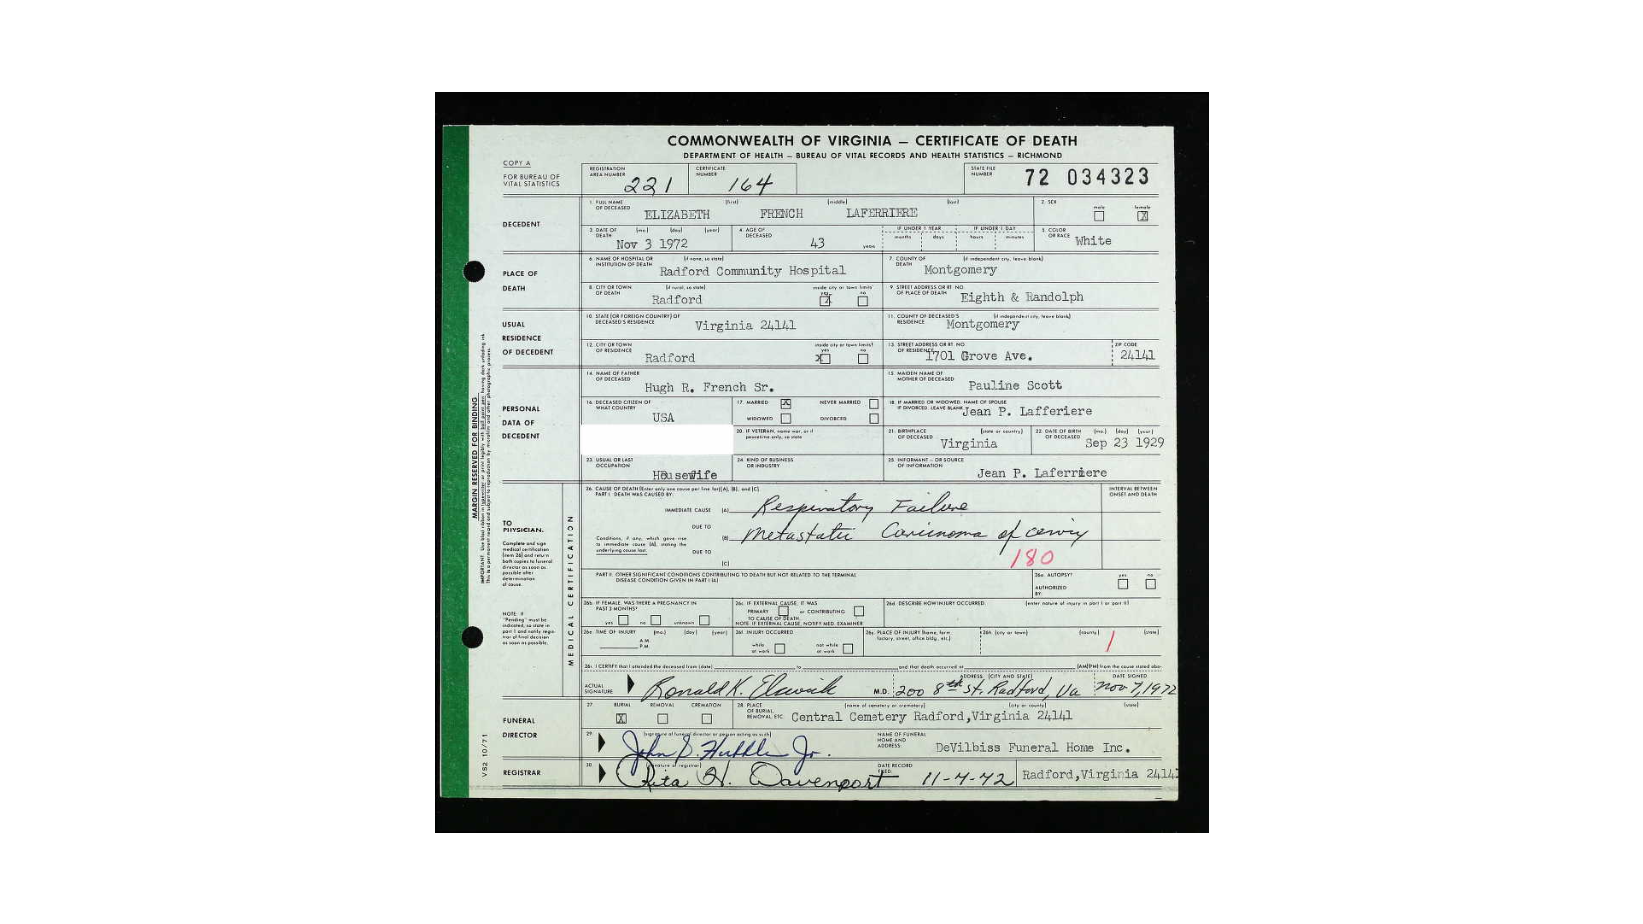 COMMONWEALTH OF VIRGINIA — CERTIFICATE OF DEATH
DEPARTMENT OF HEALTH — BUREAU OF VITAL RECORDS AND HEALTH STATISTICS — RICHMOND
COPY A
FOR BUREAU OF VITAL STATISTICS
REGISTRATION AREA NUMBER 221 CERTIFICATE NUMBER 164 STATE FILE NUMBER 72 034323
DECEDENT
1. FULL NAME OF DECEASED (first) (middle) (last) ELIZABETH FRENCH LAFERRIERE 2. SEX male female X
3. DATE OF DEATH (mo.) (day) (year) Nov 3 1972 4. AGE OF DECEASED 43 years IF UNDER 1 YEAR months days IF UNDER 1 DAY hours minutes 5. COLOR OR RACE White
PLACE OF DEATH
6. NAME OF HOSPITAL OR INSTITUTION OF DEATH (if none, so state) Radford Community Hospital 7. COUNTY OF DEATH (if independent city, leave blank) Montgomery
8. CITY OR TOWN OF DEATH (if rural, so state) Radford inside city or town limits? yes no 9. STREET ADDRESS OR RT. NO. OF PLACE OF DEATH Eighth & Randolph
USUAL RESIDENCE OF DECEDENT
10. STATE (OR FOREIGN COUNTRY) OF DECEASED'S RESIDENCE Virginia 24141 11. COUNTY OF DECEASED'S RESIDENCE (if independent city, leave blank) Montgomery
12. CITY OR TOWN OF RESIDENCE Radford inside city or town limits? yes X no 13. STREET ADDRESS OR RT. NO. OF RESIDENCE 1701 Grove Ave. ZIP CODE 24141
PERSONAL DATA OF DECEDENT
14. NAME OF FATHER OF DECEASED Hugh R. French Sr. 15. MAIDEN NAME OF MOTHER OF DECEASED Pauline Scott
16. DECEASED CITIZEN OF WHAT COUNTRY USA 17. MARRIED X NEVER MARRIED WIDOWED DIVORCED 18. IF MARRIED OR WIDOWED, NAME OF SPOUSE IF DIVORCED, LEAVE BLANK Jean P. Lafferiere
20. IF VETERAN, name war, or if peacetime only, so state 21. BIRTHPLACE OF DECEASED (state or country) Virginia 22. DATE OF BIRTH OF DECEASED (mo.) (day) (year) Sep 23 1929
23. USUAL OR LAST OCCUPATION Housewife 24. KIND OF BUSINESS OR INDUSTRY 25. INFORMANT – OR SOURCE OF INFORMATION Jean P. Laferriere
MARGIN RESERVED FOR BINDING
TO PHYSICIAN:
Complete and sign medical certification (item 26) and return both copies to funeral director as soon as possible after determination of cause.
NOTE: If "Pending" must be indicated, so state in part I and notify registrar of final decision as soon as possible.
MEDICAL CERTIFICATION
26. CAUSE OF DEATH (Enter only one cause per line for (A), (B), and (C). INTERVAL BETWEEN ONSET AND DEATH
PART I. DEATH WAS CAUSED BY:
IMMEDIATE CAUSE (A) Respiratory Failure
DUE TO (B) Metastatic Carcinoma of cervix
Conditions, if any, which gave rise to immediate cause (A), stating the underlying cause last.
DUE TO (C) 180
PART II. OTHER SIGNIFICANT CONDITIONS CONTRIBUTING TO DEATH BUT NOT RELATED TO THE TERMINAL DISEASE CONDITION GIVEN IN PART I (A) 26a. AUTOPSY? yes no AUTHORIZED BY:
26b. IF FEMALE, WAS THERE A PREGNANCY IN PAST 3 MONTHS? yes no unknown 26c. IF EXTERNAL CAUSE, IT WAS PRIMARY or CONTRIBUTING TO CAUSE OF DEATH. NOTE: IF EXTERNAL CAUSE, NOTIFY MED. EXAMINER 26d. DESCRIBE HOW INJURY OCCURRED (enter nature of injury in part I or part II)
26e. TIME OF INJURY (mo.) (day) (year) A.M. P.M. 26f. INJURY OCCURRED while at work not while at work 26g. PLACE OF INJURY (home, farm, factory, street, office bldg., etc.) 26h. (city or town) (county) (state) 1
26i. I CERTIFY that I attended the deceased from (date) to and that death occurred at (AM)(PM) from the cause stated above
ACTUAL SIGNATURE Ronald K. M.D. ADDRESS (CITY AND STATE) 200 8th St. Radford, Va DATE SIGNED Nov 7, 1972
FUNERAL DIRECTOR
27. BURIAL X REMOVAL CREMATION 28. PLACE OF BURIAL, REMOVAL, ETC. (name of cemetery or crematory) (city or county) (state) Central Cemetery Radford,Virginia 24141
29. (signature of funeral director or person acting as such) John Jr. NAME OF FUNERAL HOME AND ADDRESS: DeVilbiss Funeral Home Inc.
REGISTRAR
30. (signature of registrar) Rita H. Davenport DATE RECORD FILED: 11-7-72 Radford,Virginia 24141
VS2 10/71